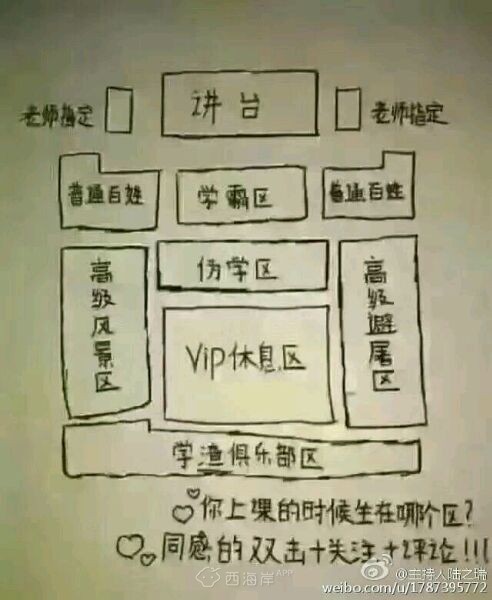 讲台
老师指定
老师指定
普通百姓
学霸区
普通百姓
伪学区
高级风景区
高级避屠区
Vip休息区
学渣俱乐部区
你上课的时候坐在哪个区?
同感的双击+关注+评论!!!
西海岸APP
@主持人陆之瑞
weibo.com/u/1787395772